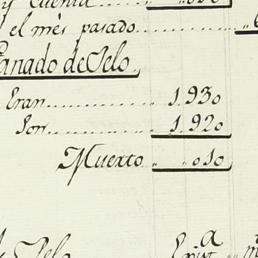 y Cuenta
el més pasado
Ganado de Pelo.
Eran 1,930
Son 1,920
Muerto ,,010
Pelo
a